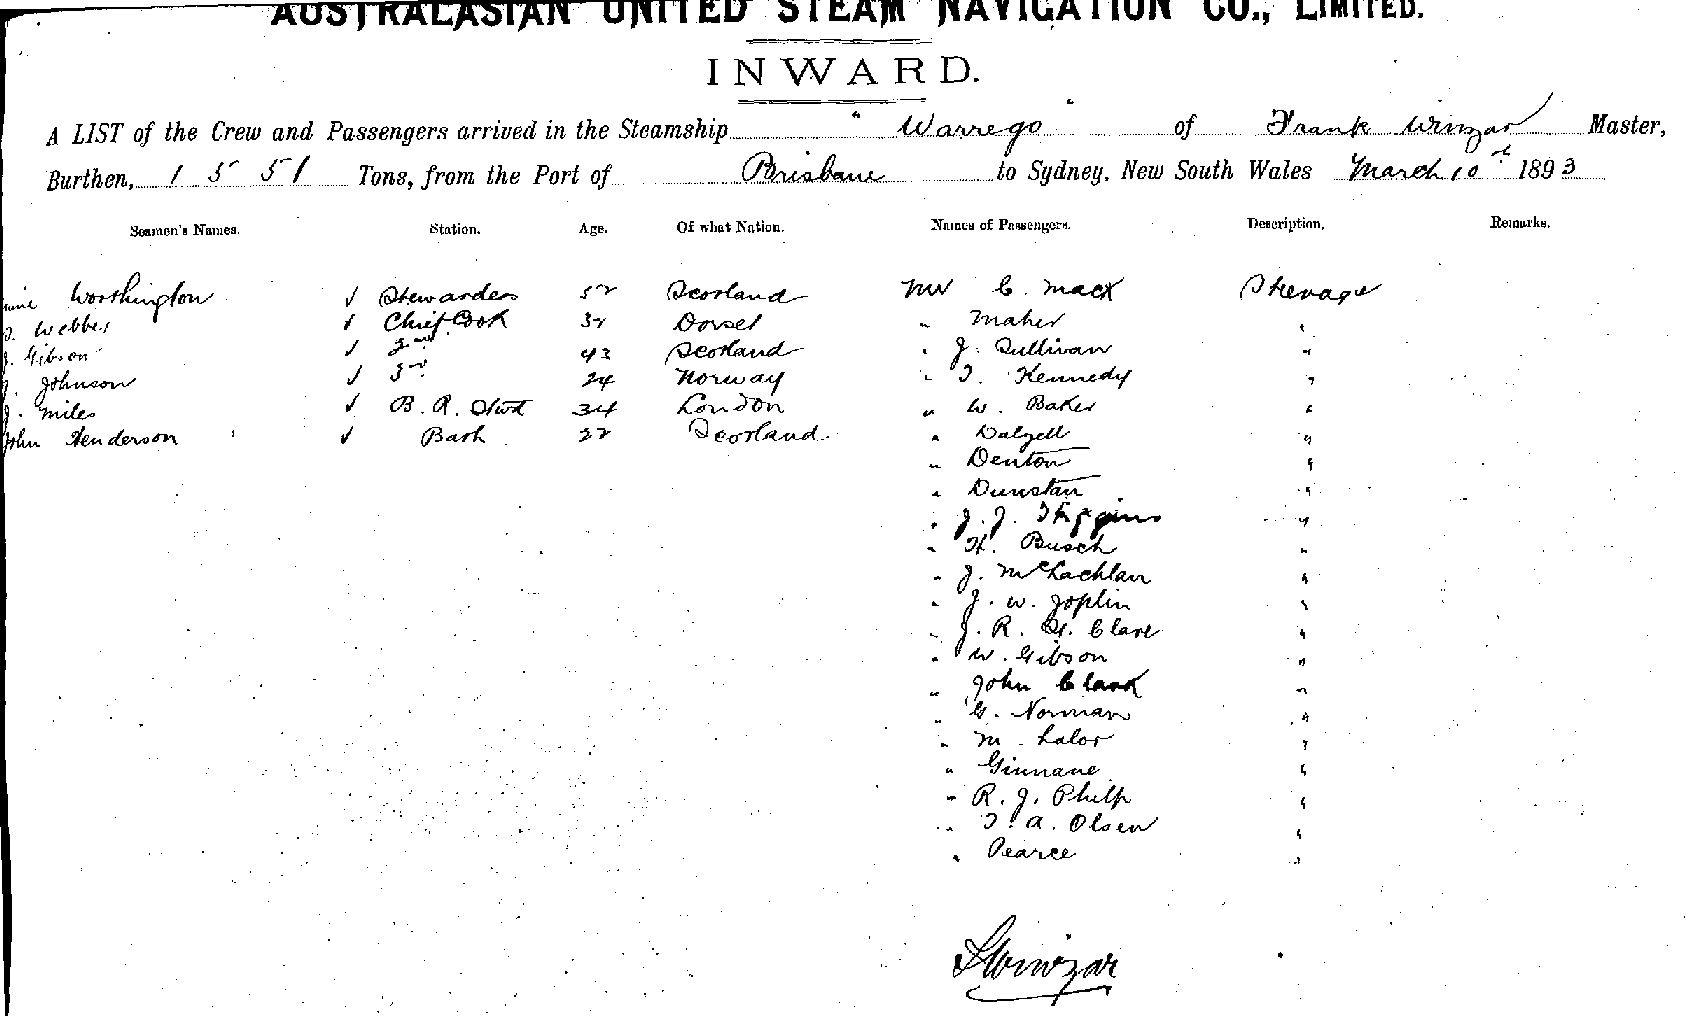 AUSTRALASIAN UNITED STEAM NAVIGATION CO., LIMITED.
INWARD.
A LIST of the Crew and Passengers arrived in the Steamship "Warrego" of Frank Winzar Master,
Burthen, 1551 Tons, from the Port of Brisbane to Sydney, New South Wales March 10th 1893
Seamen's Names. Station. Age. Of what Nation. Names of Passengers. Description. Remarks.
Worthington ✓ Stewardess 52 Scotland Mr C. Mack Steerage
Webber ✓ Chief Cook 32 Dorset " Maher "
J. Gibson ✓ 2nd 43 Scotland " J. Sullivan "
J. Johnson ✓ 3rd 24 Norway " T. Kennedy "
J. Miles ✓ B. R. Stwd 34 London " W. Baker "
John Henderson ✓ 22 Scotland " Dalzell "
" Denton "
" Dunstan "
" J. J. "
" H. Busch "
" J. McLachlan "
" J. W. Joplin "
" J. R. G. Clare "
" W. Gibson "
" John Clark "
" G. Norman "
" M. Lalor "
" Ginnane "
" R. J. Philp "
" T. A. Olsen "
" Pearce "
F Winzar